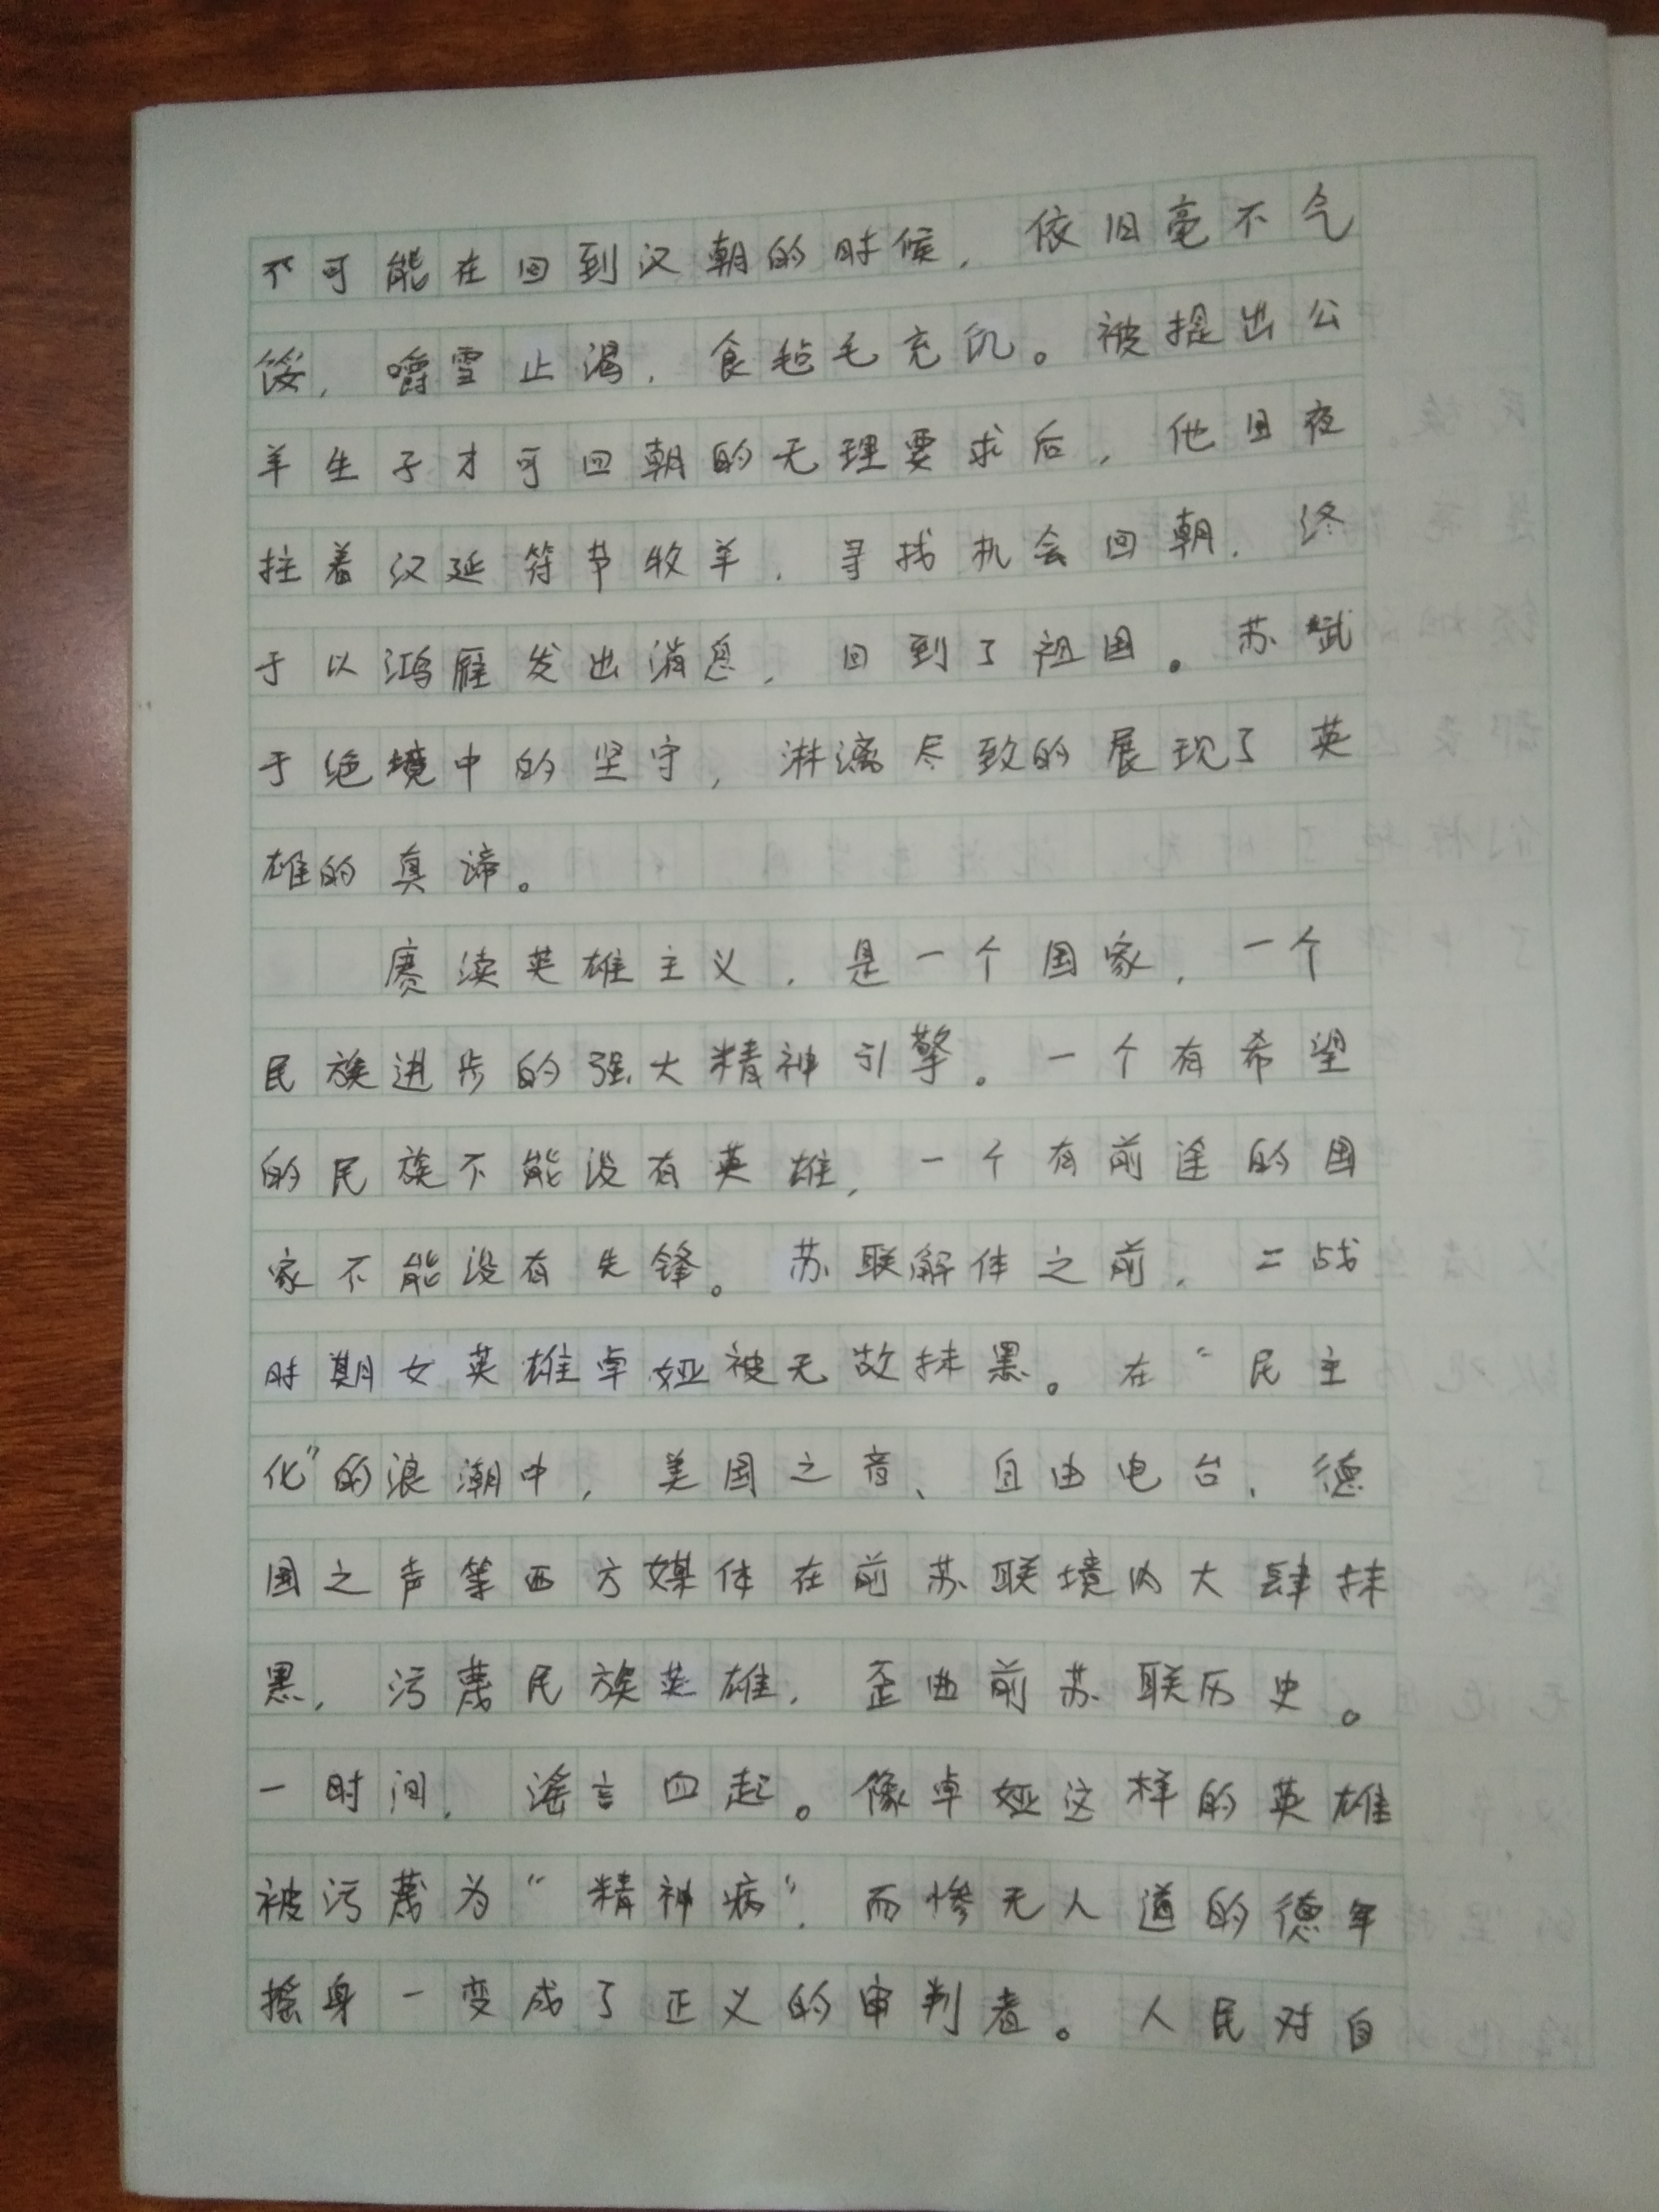 不可能在回到汉朝的时候，依旧毫不气
馁，嚼雪止渴，食毡毛充饥。被提出公
羊生子才可回朝的无理要求后，他日夜
拄着汉延符节牧羊，寻找机会回朝，终
于以鸿雁发出消息，回到了祖国。苏武
于绝境中的坚守，淋漓尽致的展现了英
雄的真谛。
赓续英雄主义，是一个国家，一个
民族进步的强大精神引擎。一个有希望
的民族不能没有英雄，一个有前途的国
家不能没有先锋。苏联解体之前，二战
时期女英雄卓娅被无故抹黑。在“民主
化”的浪潮中，美国之音、自由电台、德
国之声等西方媒体在前苏联境内大肆抹
黑，污蔑民族英雄，歪曲前苏联历史。
一时间，谣言四起。像卓娅这样的英雄
被污蔑为“精神病”，而惨无人道的德军
摇身一变成了正义的审判者。人民对自